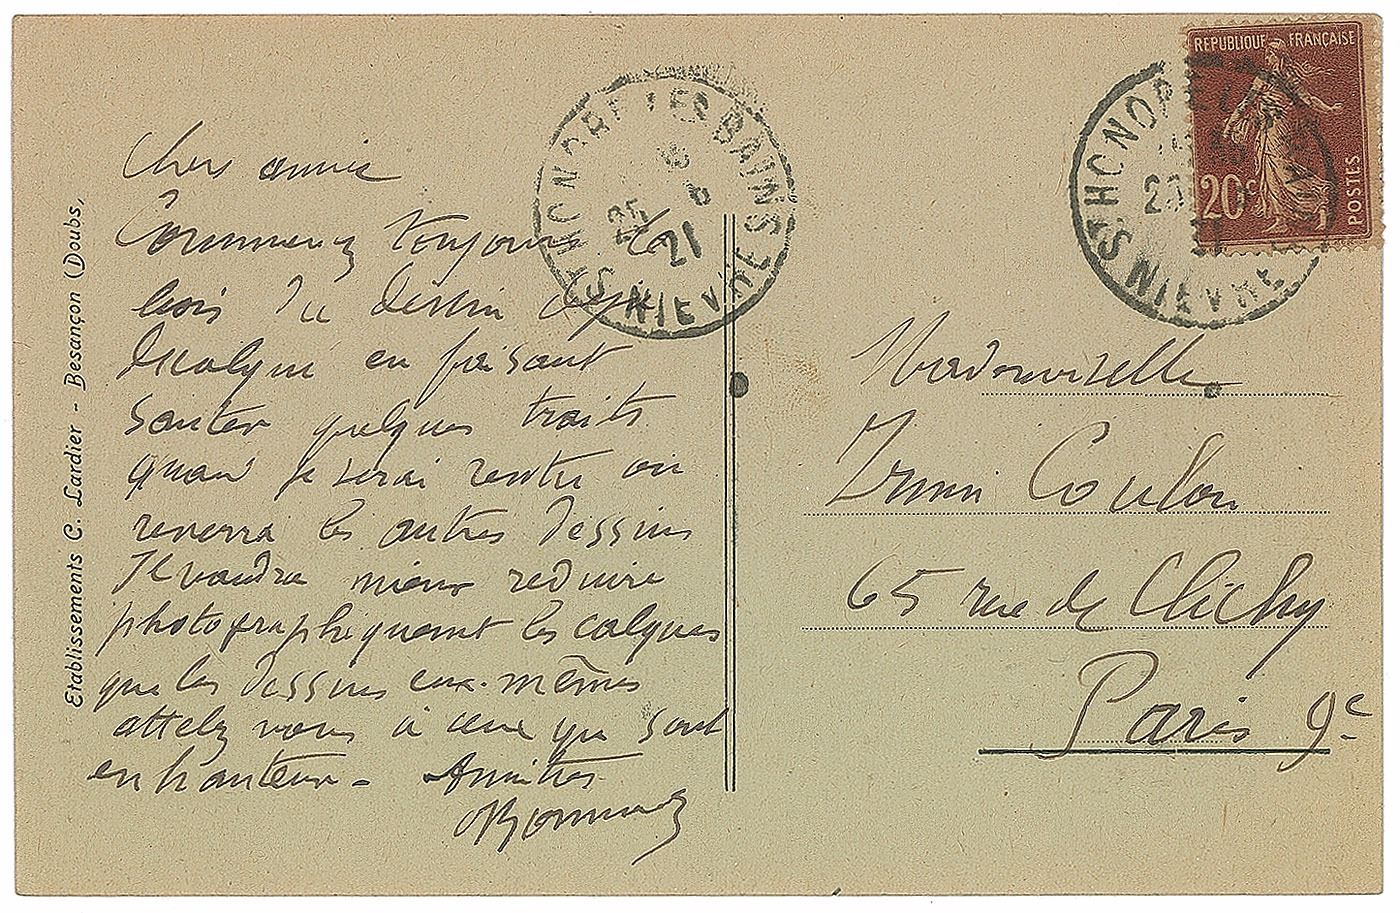 Etablissements C. Lardier - Besançon (Doubs,
Chers amis
Commencez toujours le
bois du dessin déjà
décalqué en faisant
sauter quelques traits
quand je serai rentré on
reverra les autres dessins
Il vaudra mieux reduire
photographiquement les calques
que les dessins eux-mêmes
attelez vous à ceux qui sont
en hauteur - Amitiés
Bonnard
ST HONORÉ LES BAINS
25
21
NIEVRE
ST HONORÉ
NIEVRE
REPUBLIQUE FRANÇAISE
20c
POSTES
Mademoiselle
Coulon
65 rue de Clichy
Paris 9e